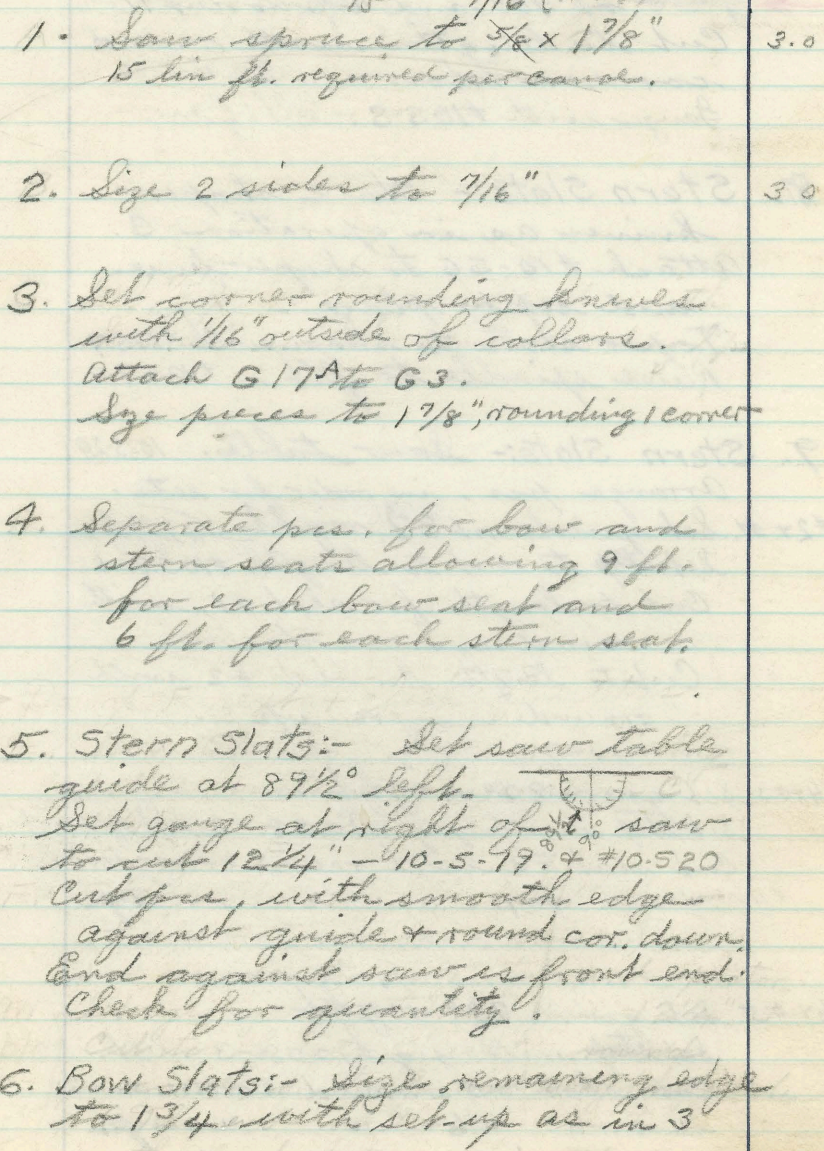 15 7/16
1. Saw spruce to 5/8 x 1 7/8" 3.0
15 lin ft. required per canoe.
2. Size 2 sides to 7/16" 3 0
3. Set corner rounding knives
with 1/16" outside of collars.
Attach G17A to G3.
Size pieces to 1 7/8", rounding 1 corner
4. Separate pcs. for bow and
stern seats allowing 9 ft.
for each bow seat and
6 ft. for each stern seat.
5. Stern Slats:- Set saw table
guide at 89 1/2° left.
Set gauge at right of saw
89 1/2 90°
to cut 12 1/4" - 10-5-19. & #10-520
Cut pcs. with smooth edge
against guide & round cor. down.
End against saw is front end.
Check for quantity.
6. Bow Slats:- Size remaining edge
to 1 3/4 with set-up as in 3